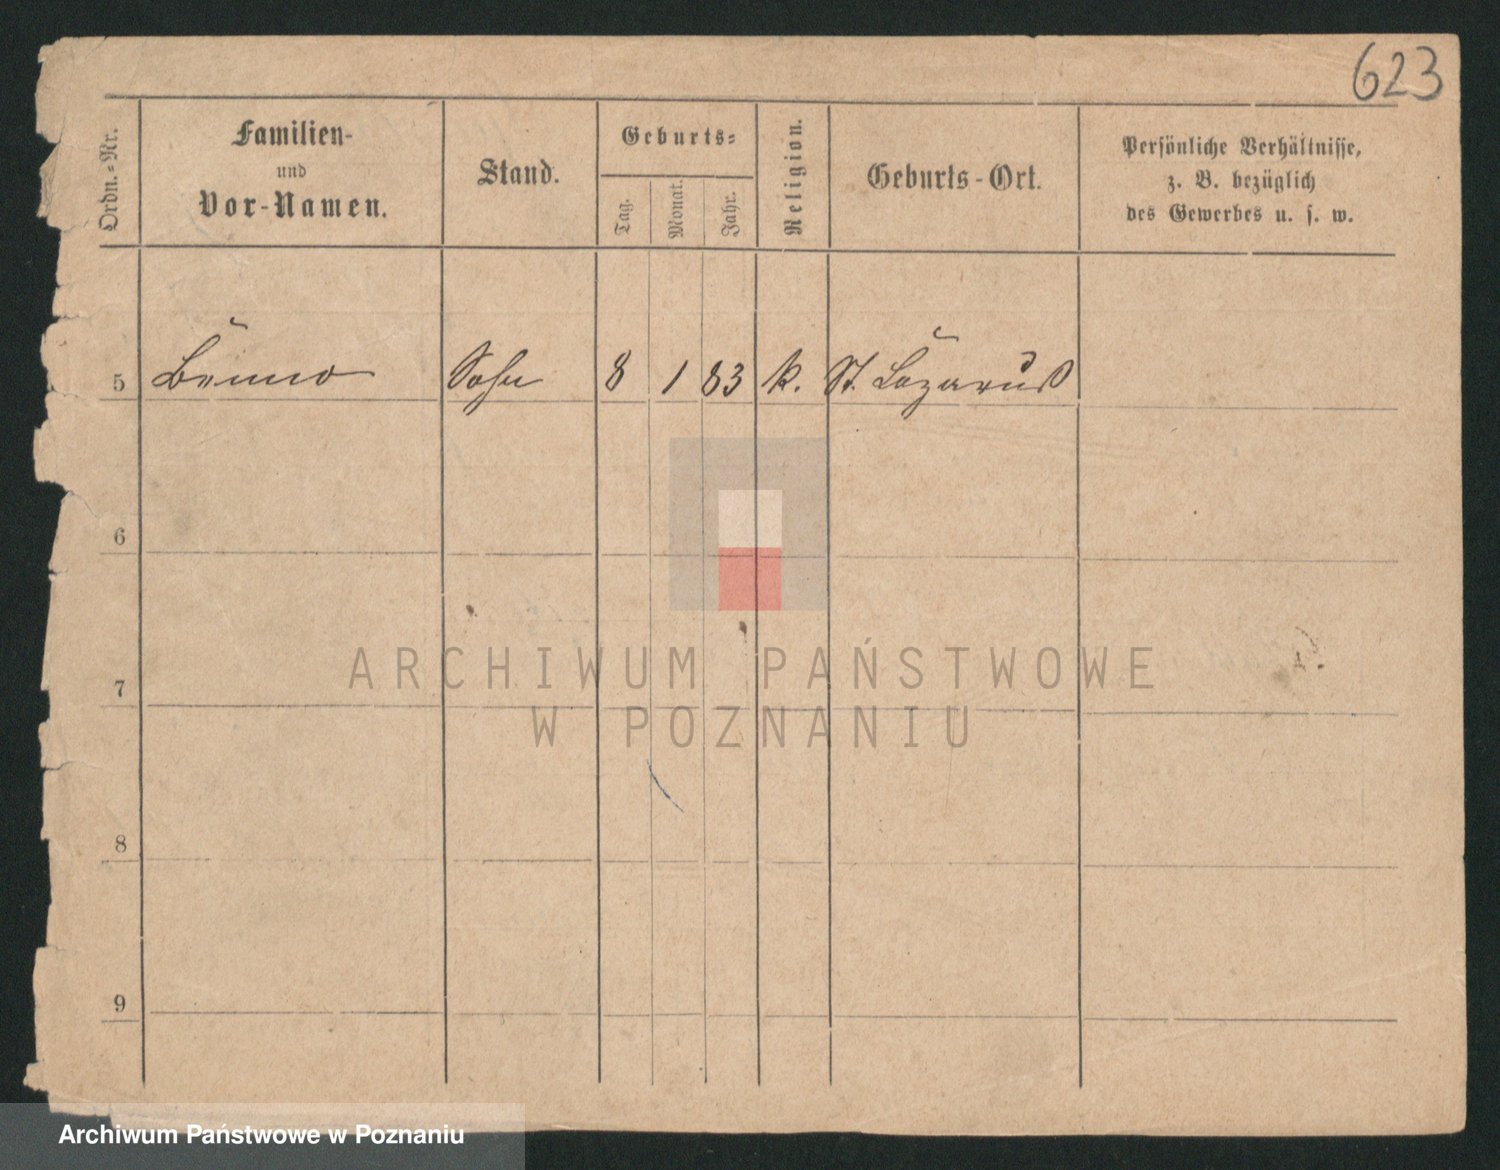 623
Ordn.-Nr.
Familien-
und
Vor-Namen.
Stand.
Geburts-
Tag.
Monat.
Jahr.
Religion.
Geburts-Ort.
Persönliche Verhältnisse,
z. B. bezüglich
des Gewerbes u. s. w.
5 Benno Sohn 8 1 83 k. St. Lazarus
6
7
8
9
ARCHIWUM PAŃSTWOWE
W POZNANIU
Archiwum Państwowe w Poznaniu